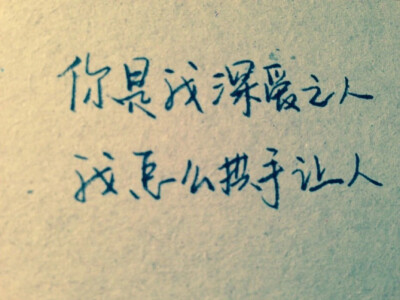 你是我深爱之人
我怎么拱手让人